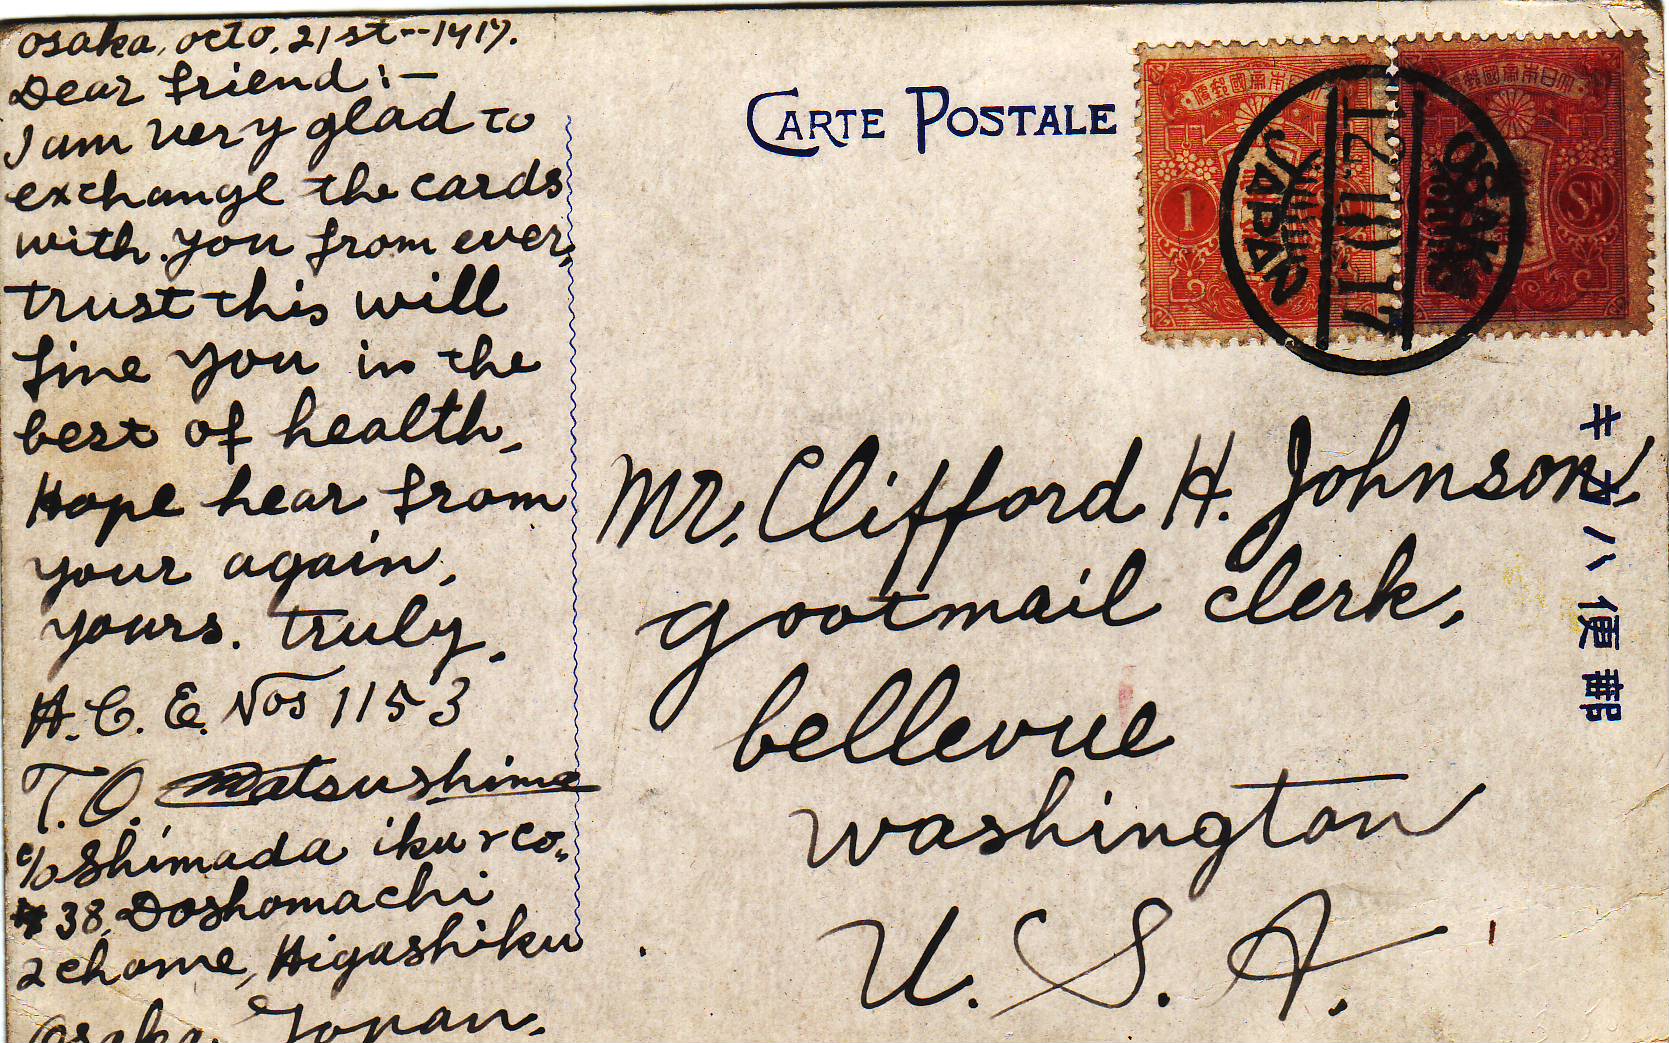 Osaka, Octo, 21st--1917.
Dear friend:-
I am very glad to
exchange the cards
with. you from ever,
trust this will
fine you in the
best of health,
Hope hear from
your again,
yours. truly,
H. C. E. Nos 1153
T. O. Matsushima
c/o Shimada iku & co.,
# 38, Doshomachi
2 chome, Higashiku
Osaka, Japan.
CARTE POSTALE
大日本帝國郵便
1
大日本帝國郵便
Sn
OSAKA
12.10.17
JAPAN
Mr. Clifford H. Johnson,
gootmail clerk,
bellevue
washington
U. S. A.
郵便ハカキ